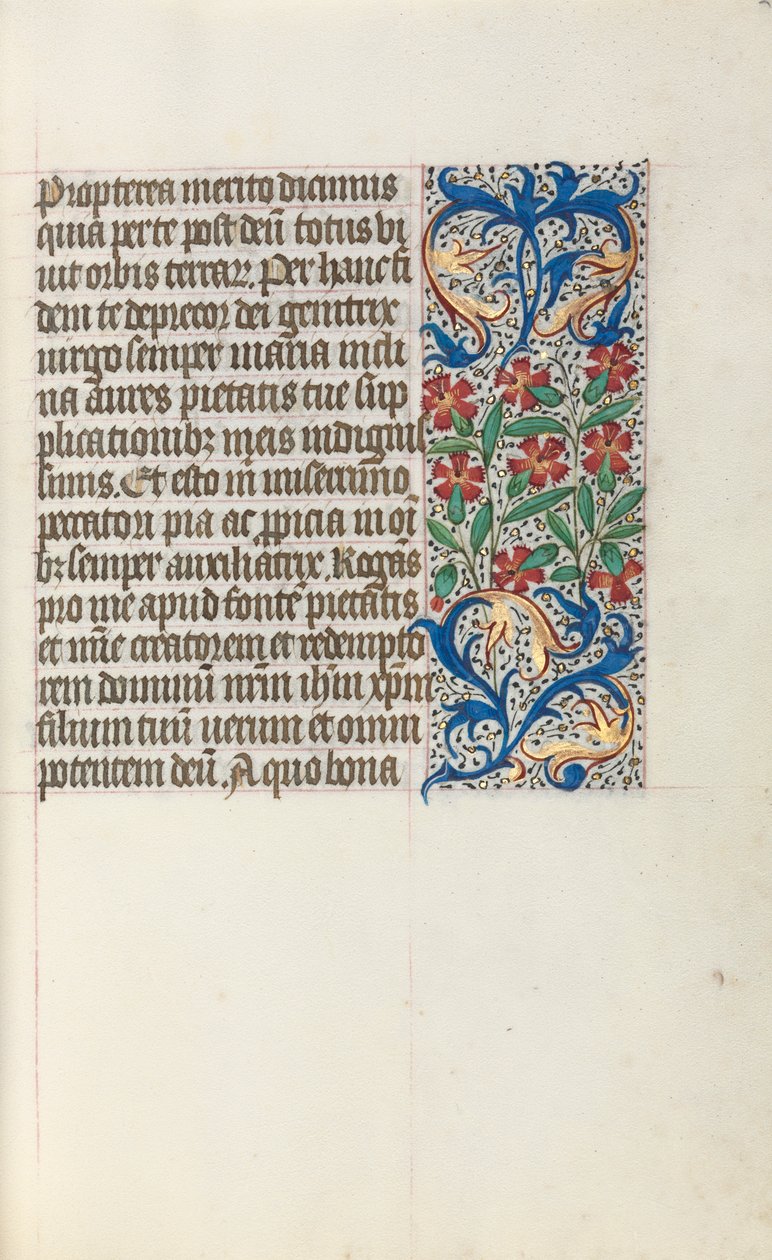 Propterea merito dicimus
quia per te post deū totus vi
uit orbis terraꝝ. Per hanc fi
dem te deprecor dei genitrix
uirgo semper maria incli
na aures pietatis tue sup
plicationibꝫ meis indignis
simis. Et esto m̄ miserrimo
peccatori pia ac ꝓpicia ī oī
bꝫ semper auxiliatrix. Rogās
pro me apud fontē pietatis
et mīe creatorem et redempto
rem dominū nr̄m ihm̄ xp̄m
filium tuū uerum et omni
potentem deū. A quo bona